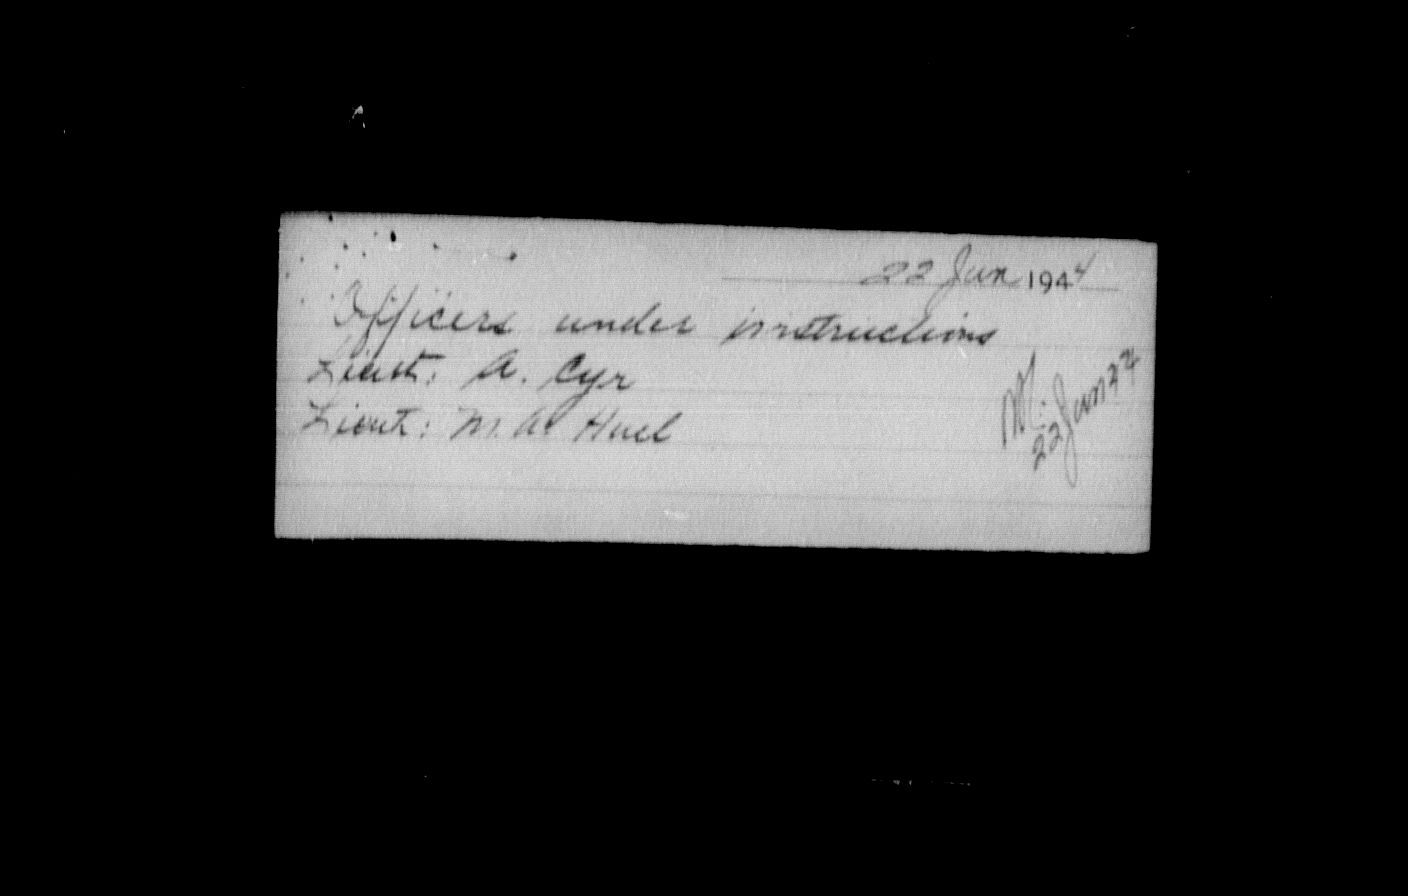 22 Jun 1944
Officers under instructions
Lieut: A. Cyr
Lieut: M. A. Huel
22 Jun 44